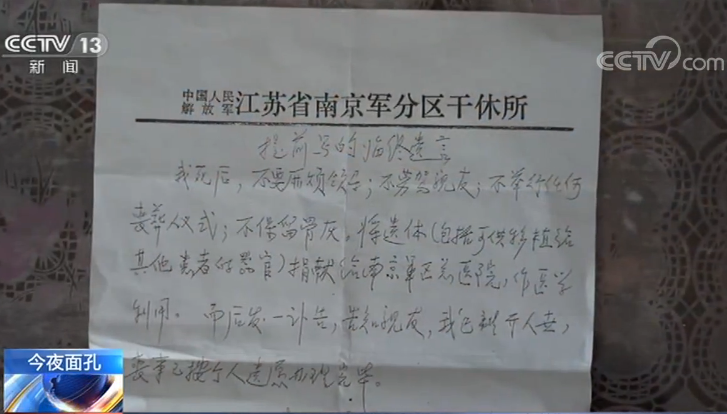 CCTV 13
新闻
CCTV.com
中国人民
解放军
江苏省南京军分区干休所
提前写的临终遗言
我死后，不要麻烦领导；不劳驾亲友；不举行任何
丧葬仪式；不保留骨灰。将遗体（包括可供移植给
其他患者的器官）捐献给南京军区总医院，作医学
利用。而后发一讣告，告知亲友，我已离开人世，
丧事已按个人遗愿办理完毕。
今夜面孔